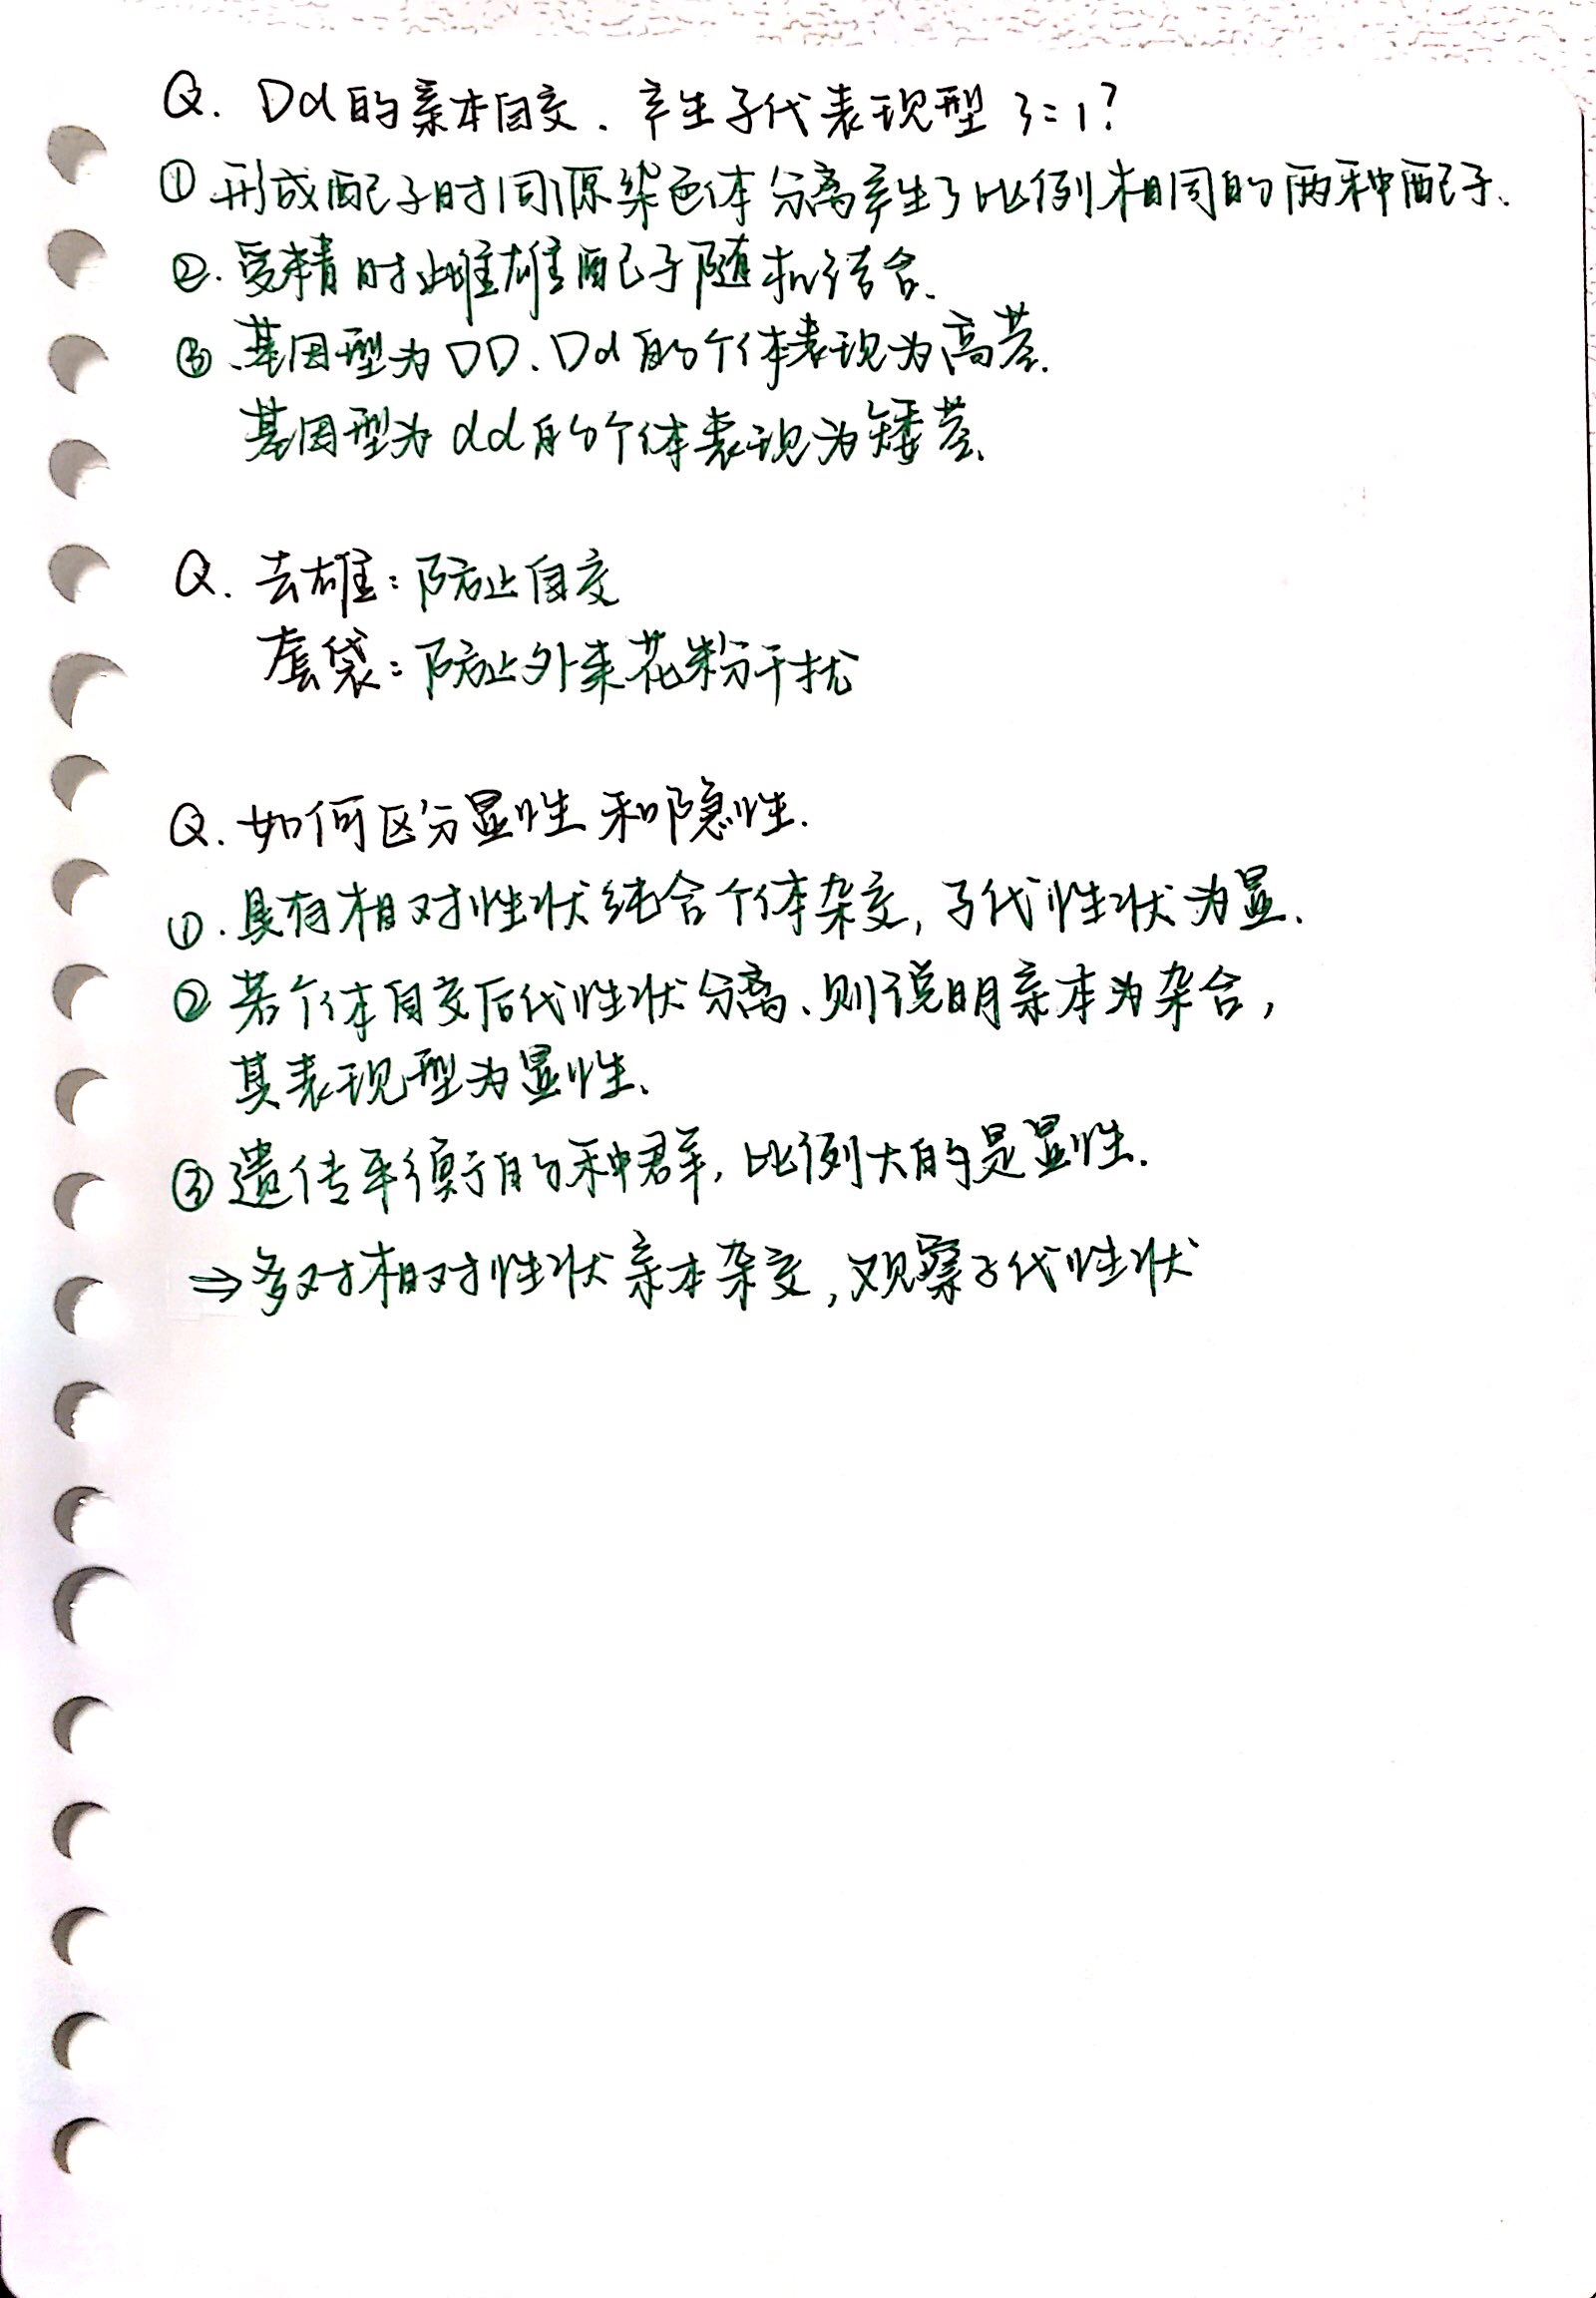 Q. Dd的亲本自交、产生子代表现型 3:1?
① 形成配子时同源染色体分离产生了比例相同的两种配子、
②. 受精时雌雄配子随机结合、
③、基因型为DD、Dd的个体表现为高茎.
基因型为dd的个体表现为矮茎、
Q. 去雄:防止自交
套袋:防止外来花粉干扰
Q. 如何区分显性和隐性.
①. 具有相对性状纯合个体杂交,子代性状为显.
② 若个体自交后代性状分离、则说明亲本为杂合,
其表现型为显性、
③ 遗传平衡的种群,比例大的是显性.
⇒ 多对相对性状亲本杂交,观察子代性状